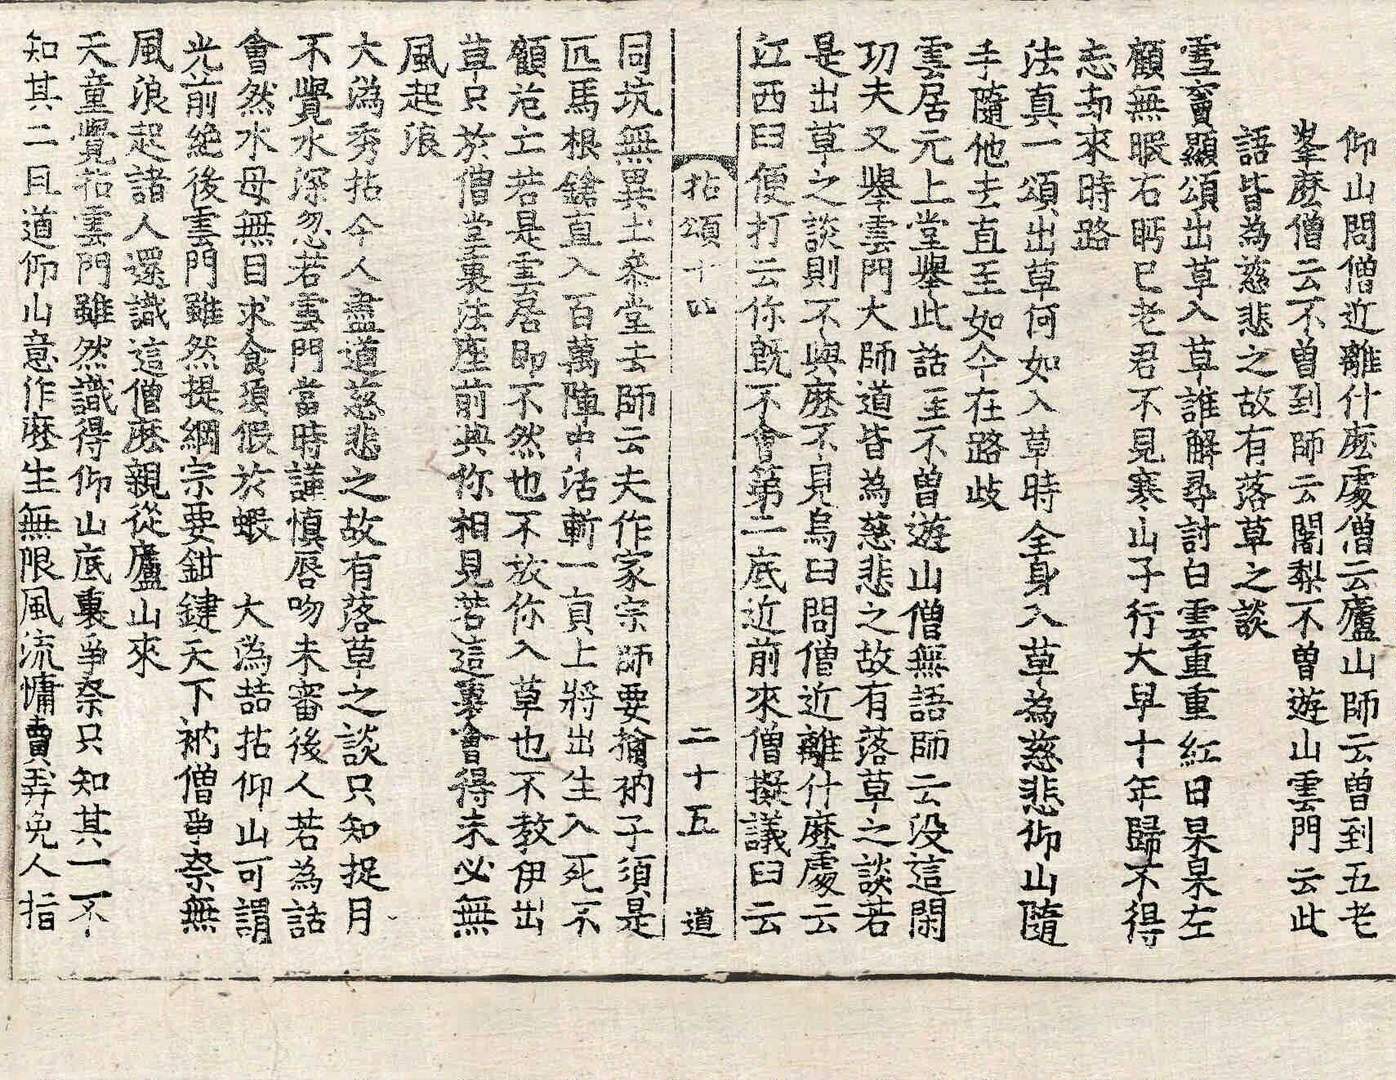 仰山問僧近離什麽處僧云廬山師云曾到五老
峯麽僧云不曾到師云闍梨不曾遊山雲門云此
語皆為慈悲之故有落草之談
雪竇顯頌出草入草誰解尋討白雲重重紅日杲杲左
顧無暇右眄已老君不見寒山子行大早十年歸不得
忘却來時路
法真一頌出草何如入草時全身入草為慈悲仰山隨
手隨他去直至如今在路歧
雲居元上堂舉此話至不曾遊山僧無語師云没這閑
功夫又舉雲門大師道皆為慈悲之故有落草之談若
是出草之談則不與麽不見烏臼問僧近離什麽處云
江西臼便打云你旣不會第二底近前來僧擬議臼云
拈頌十四
二十五
道
同坑無異土叅堂去師云夫作家宗師要擒衲子須是
匹馬根鎗直入百萬陣中活斬一員上將出生入死不
顧危亡若是雲居即不然也不放你入草也不教伊出
草只於僧堂裏法座前與你相見若這裏會得未必無
風起浪
大潙秀拈今人盡道慈悲之故有落草之談只知捉月
不覺水深忽若雲門當時謹慎唇吻未審後人若為話
會然水母無目求食須假於蝦 大潙喆拈仰山可謂
光前絶後雲門雖然提綱宗要鉗鍵天下衲僧爭奈無
風浪起諸人還識這僧麽親從廬山來
天童覺拈雲門雖然識得仰山底裏爭奈只知其一不
知其二且道仰山意作麽生無限風流慵賣弄免人指